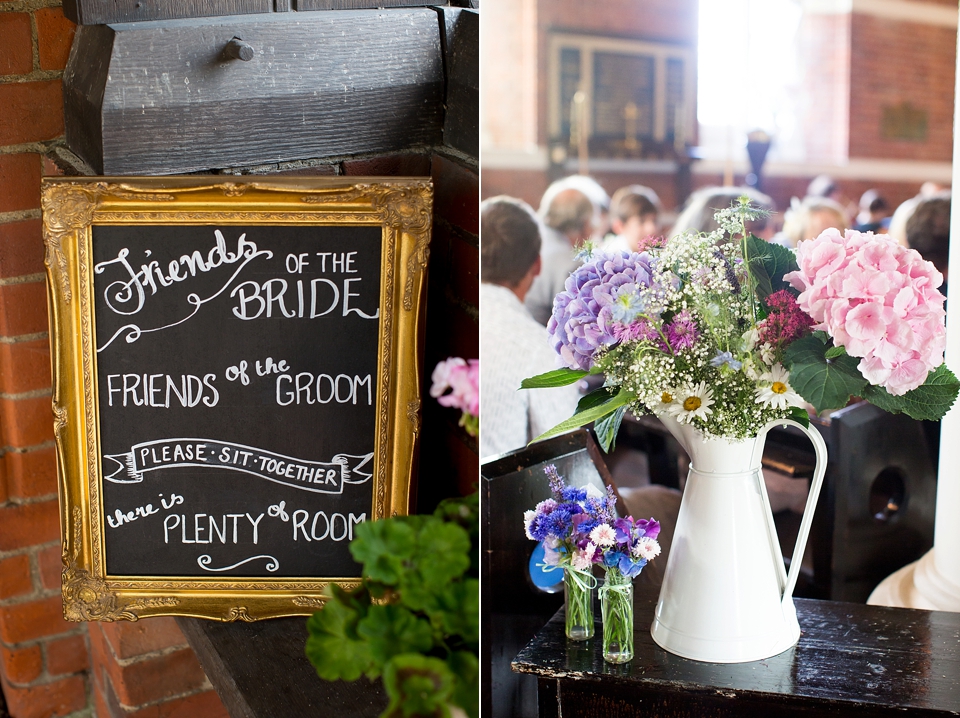 Friends OF THE
BRIDE
FRIENDS of the GROOM
PLEASE · SIT · TOGETHER
there is
PLENTY of ROOM